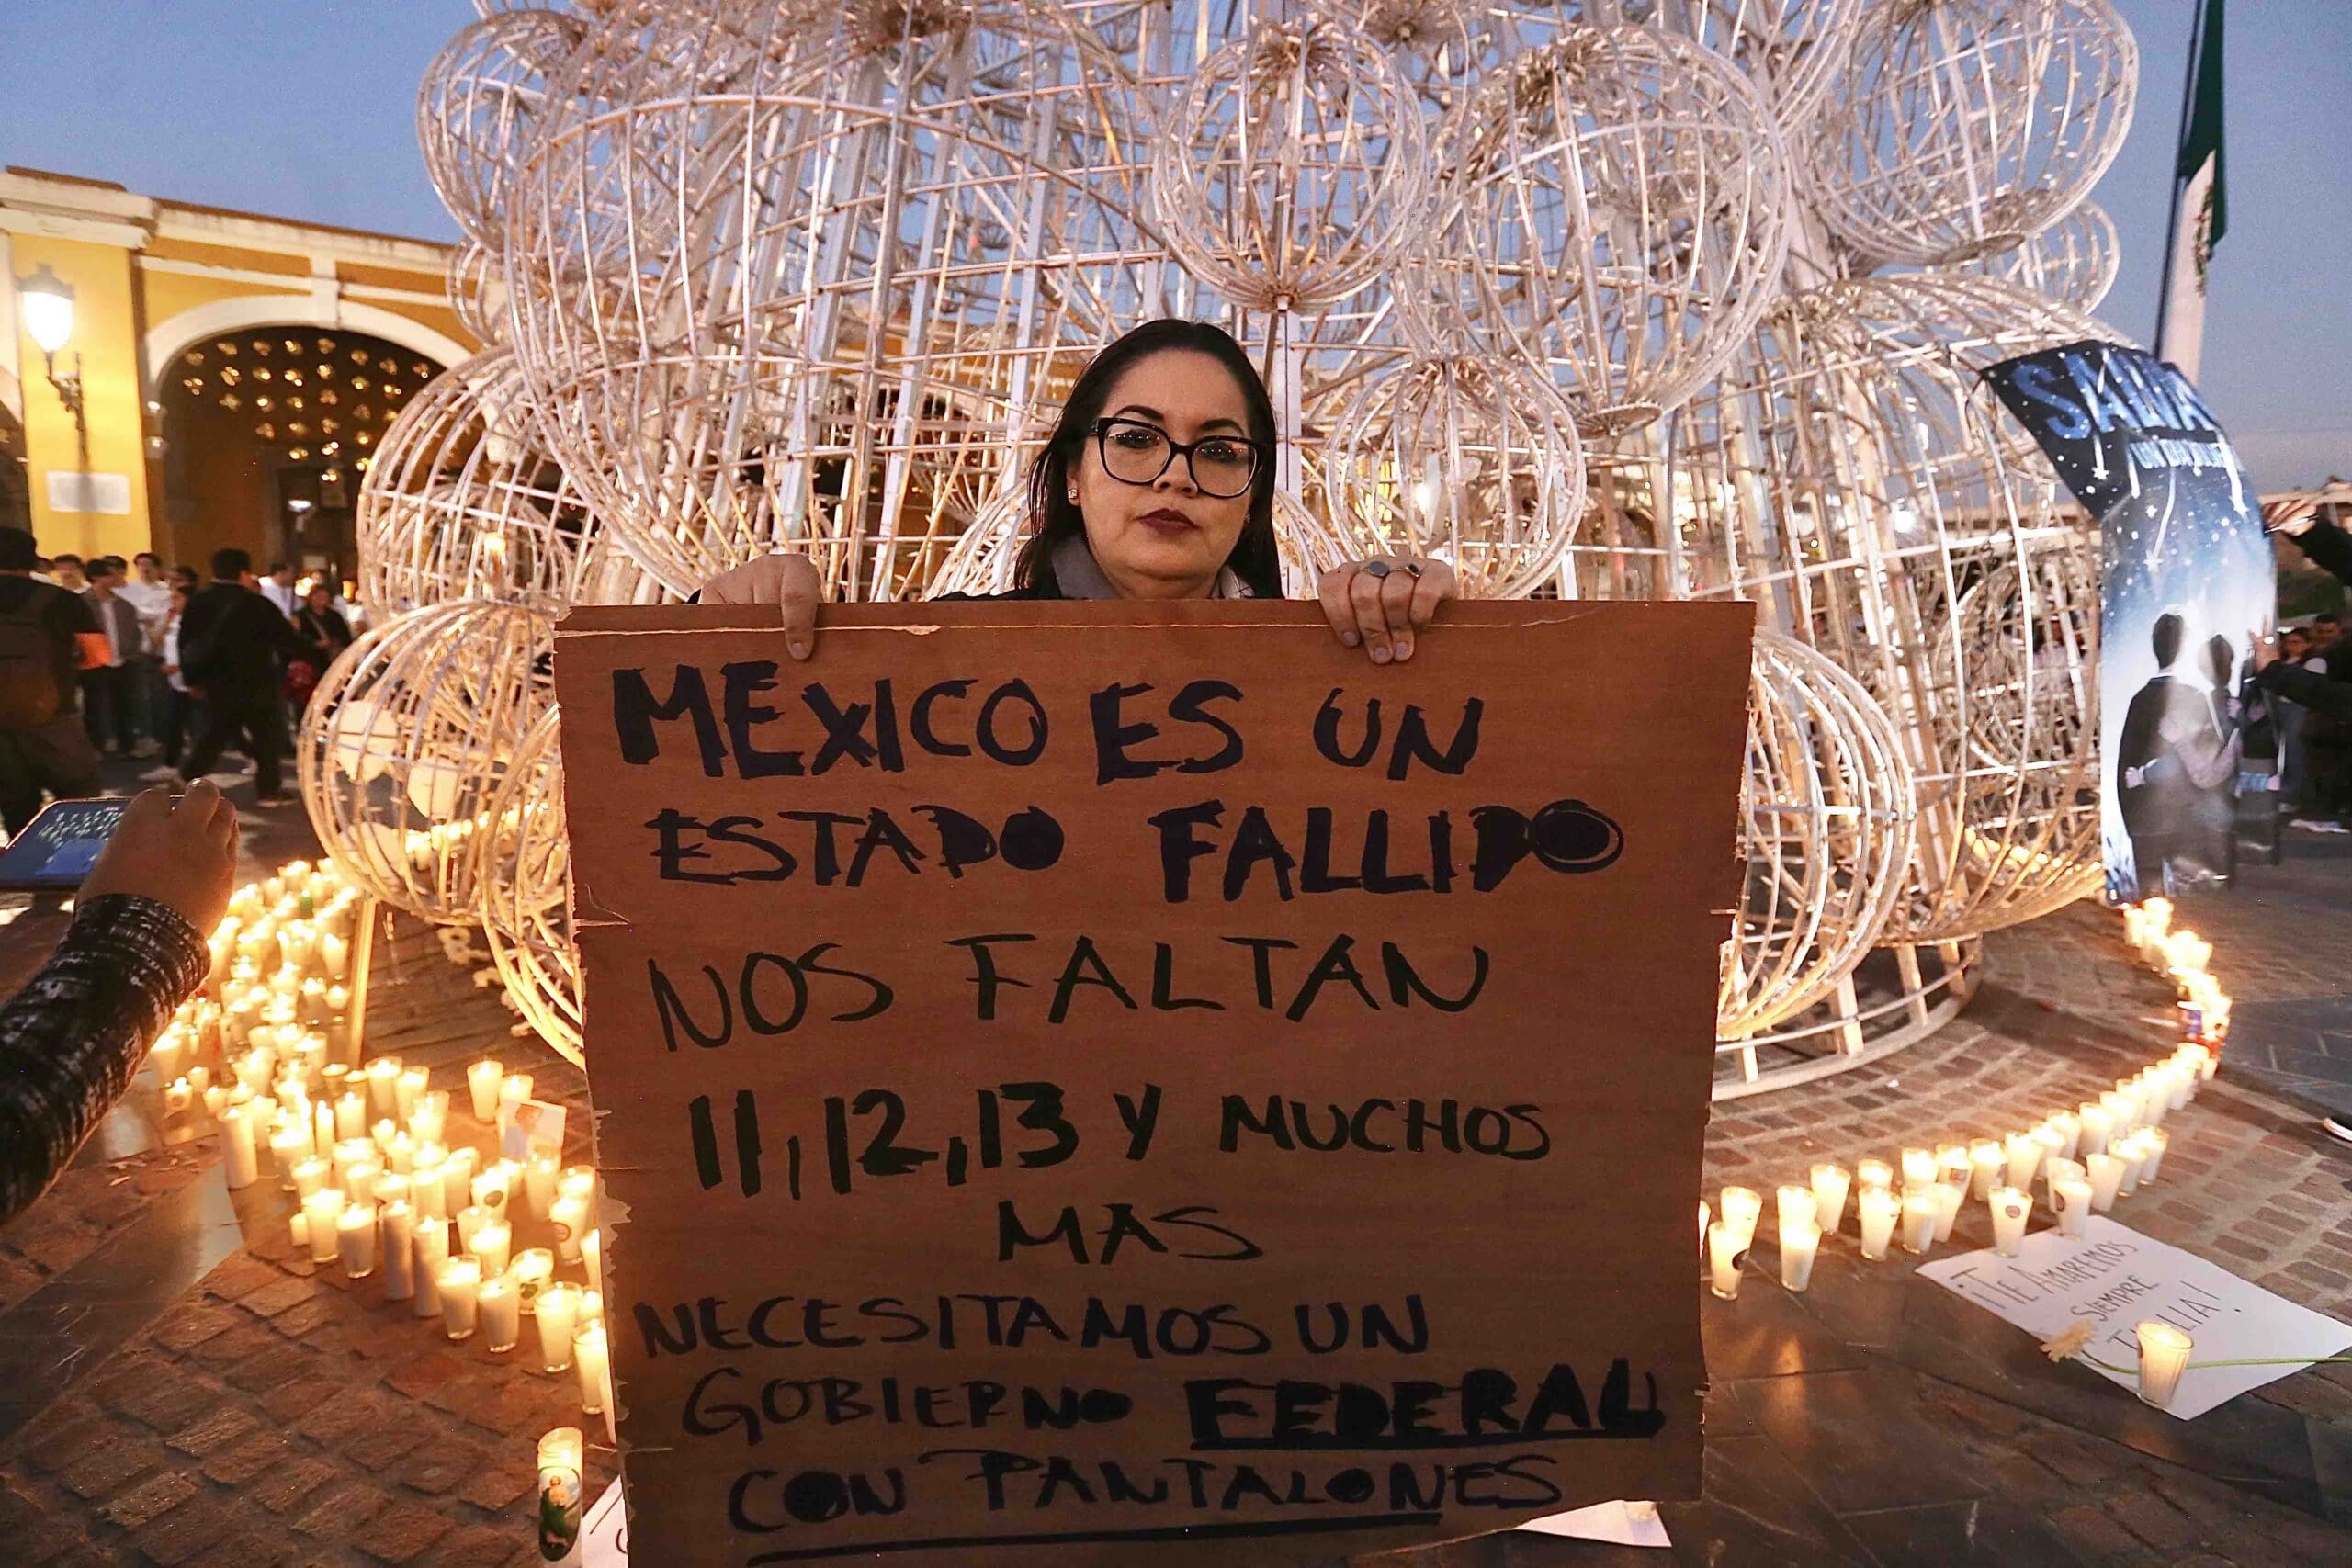 MEXICO ES UN
ESTADO FALLIDO
NOS FALTAN
11,12,13 Y MUCHOS
MAS
NECESITAMOS UN
GOBIERNO FEDERAL
CON PANTALONES
¡TE AMAREMOS
SIEMPRE